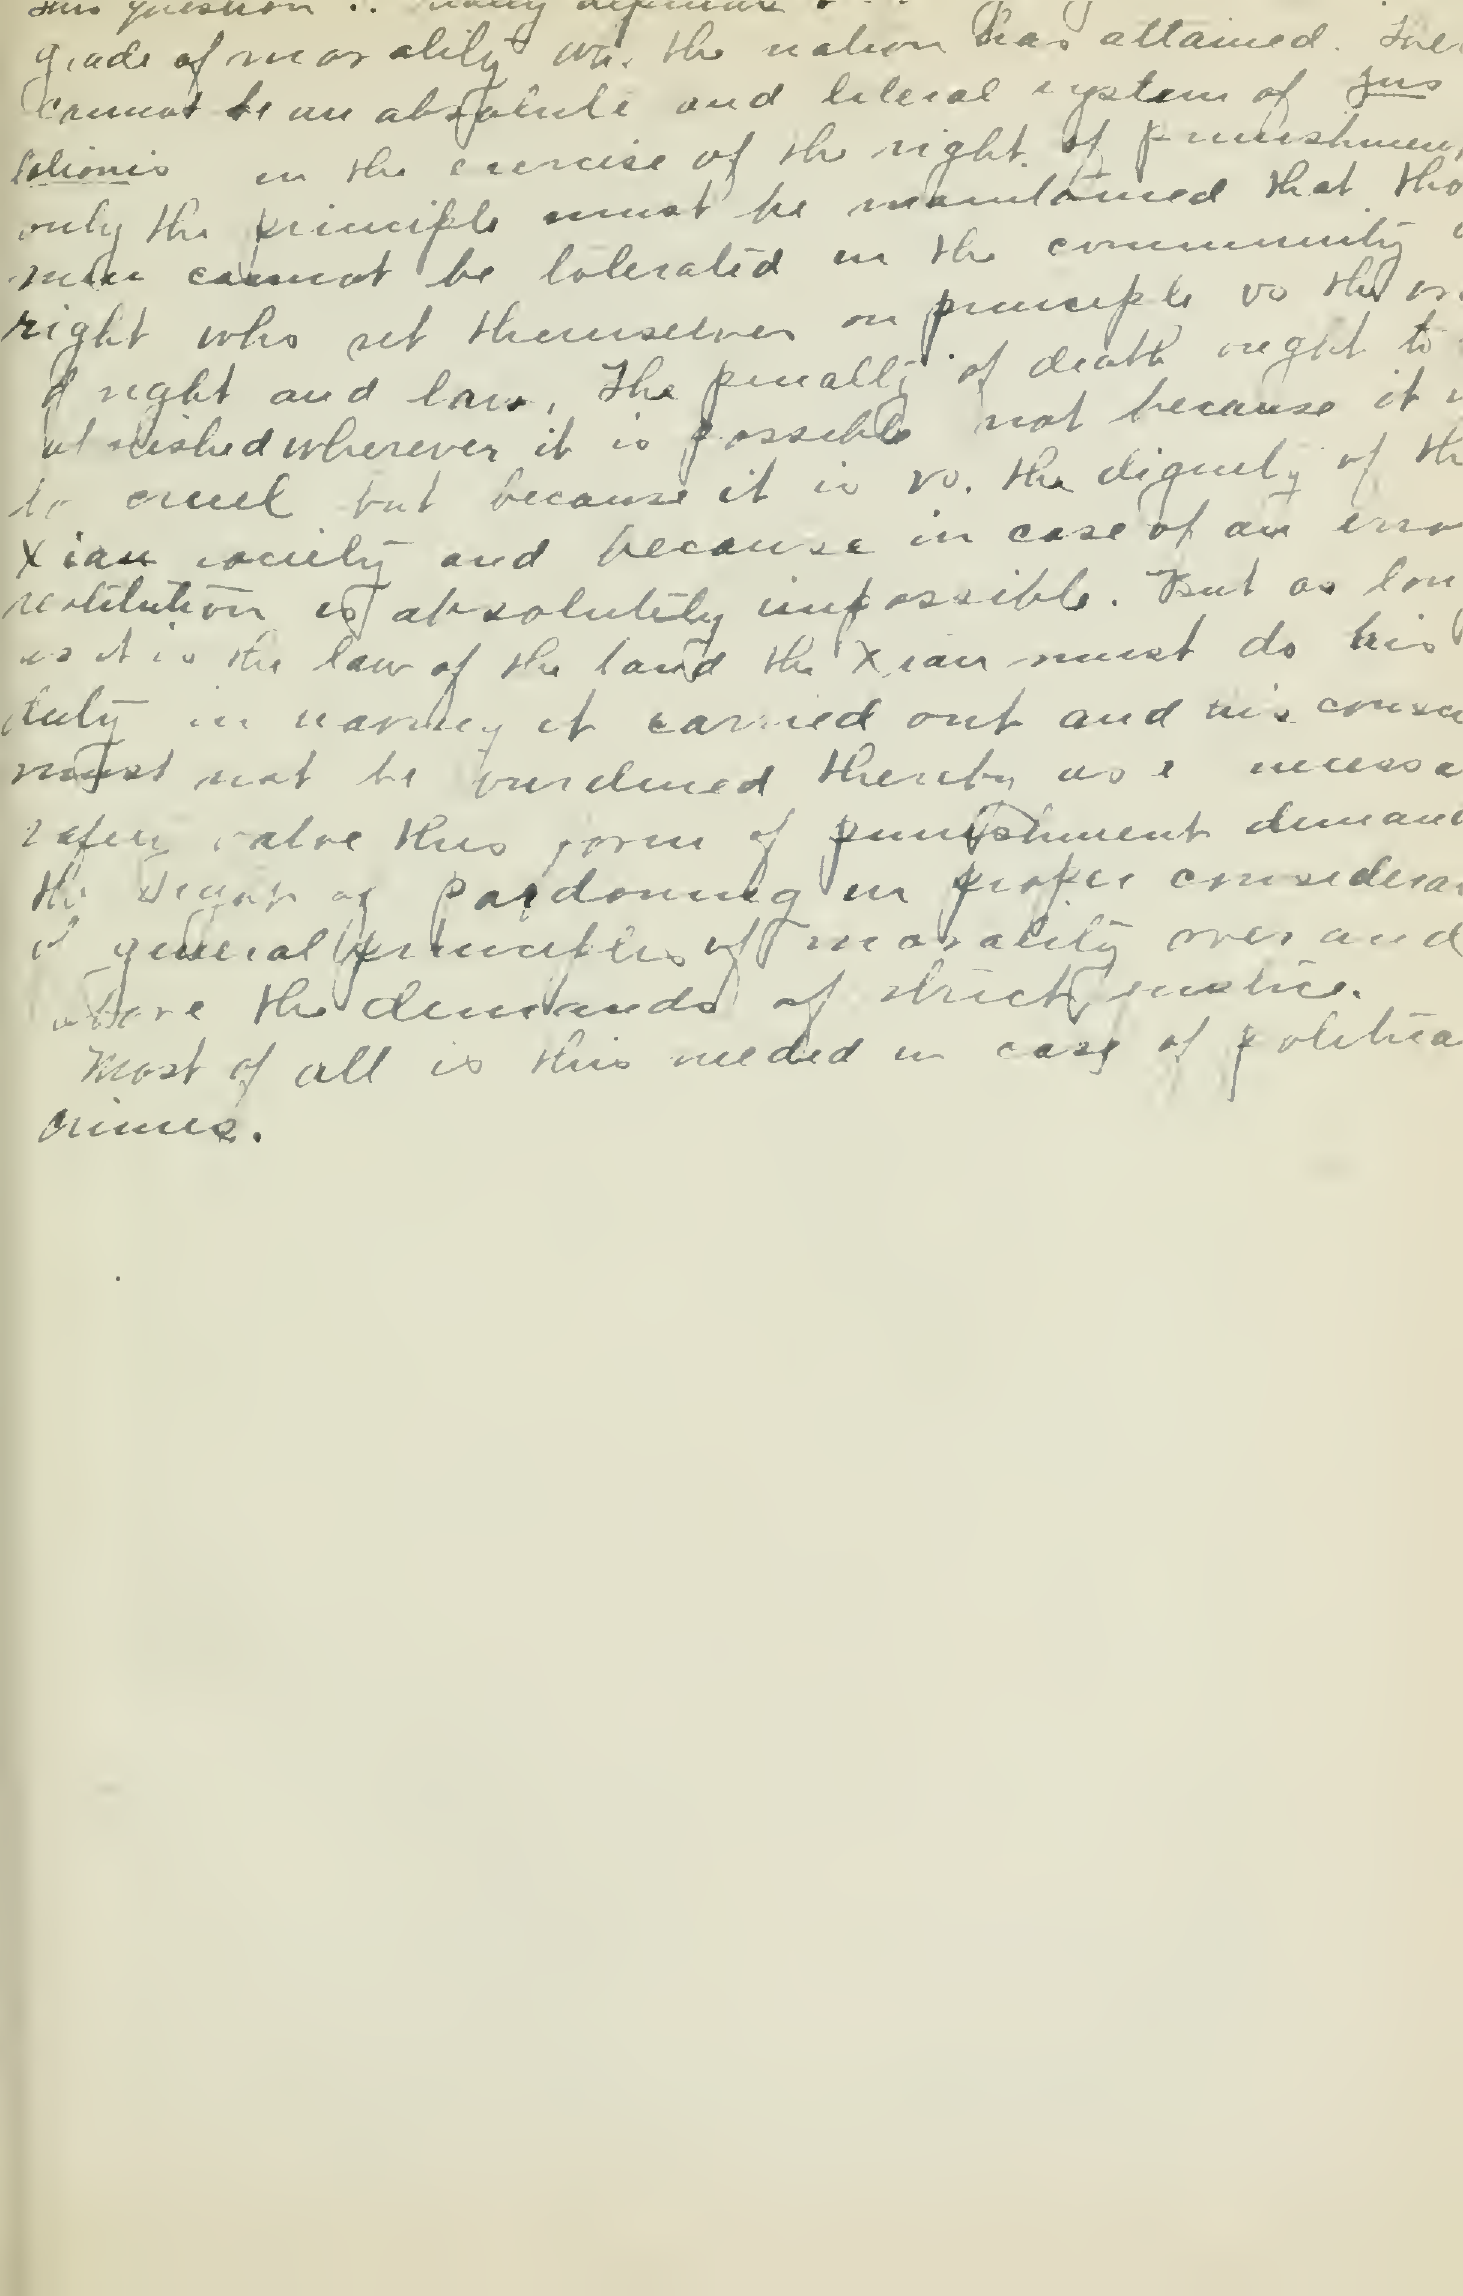 this question
grade of morality wh. the nation has attained.
cannot be an absolute and literal system of jus
talionis in the exercise of the right of punishmen
only the principle must be maintained that tho
men cannot be tolerated in the community
right who set themselves on principle vs the
of right and law. The penalty of death ought to
abolished wherever it is possible not because it
to cruel but because it is vs. the dignity of th
Xian society and because in case of an erro
restitution is absolutely impossible. But as lon
as it is the law of the land the Xian must do his
duty in having it carried out and his consci
must not be burdened thereby as a necessa
safety valve this form of punishment deman
the right of pardoning in proper considera
of general principles of morality over and
above the demands of strict justice.
Most of all is this needed in case of politica
crimes.